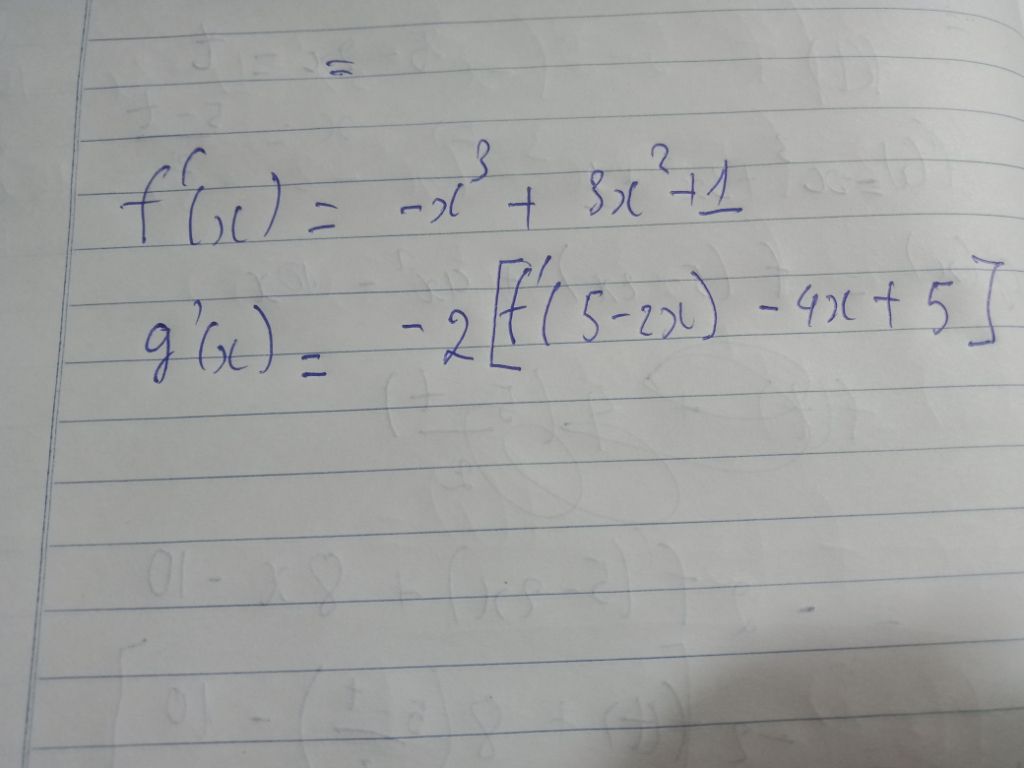 =
f'(x) = -x³ + 3x² + 1
g'(x) = -2 [f'(5-2x) - 4x + 5]